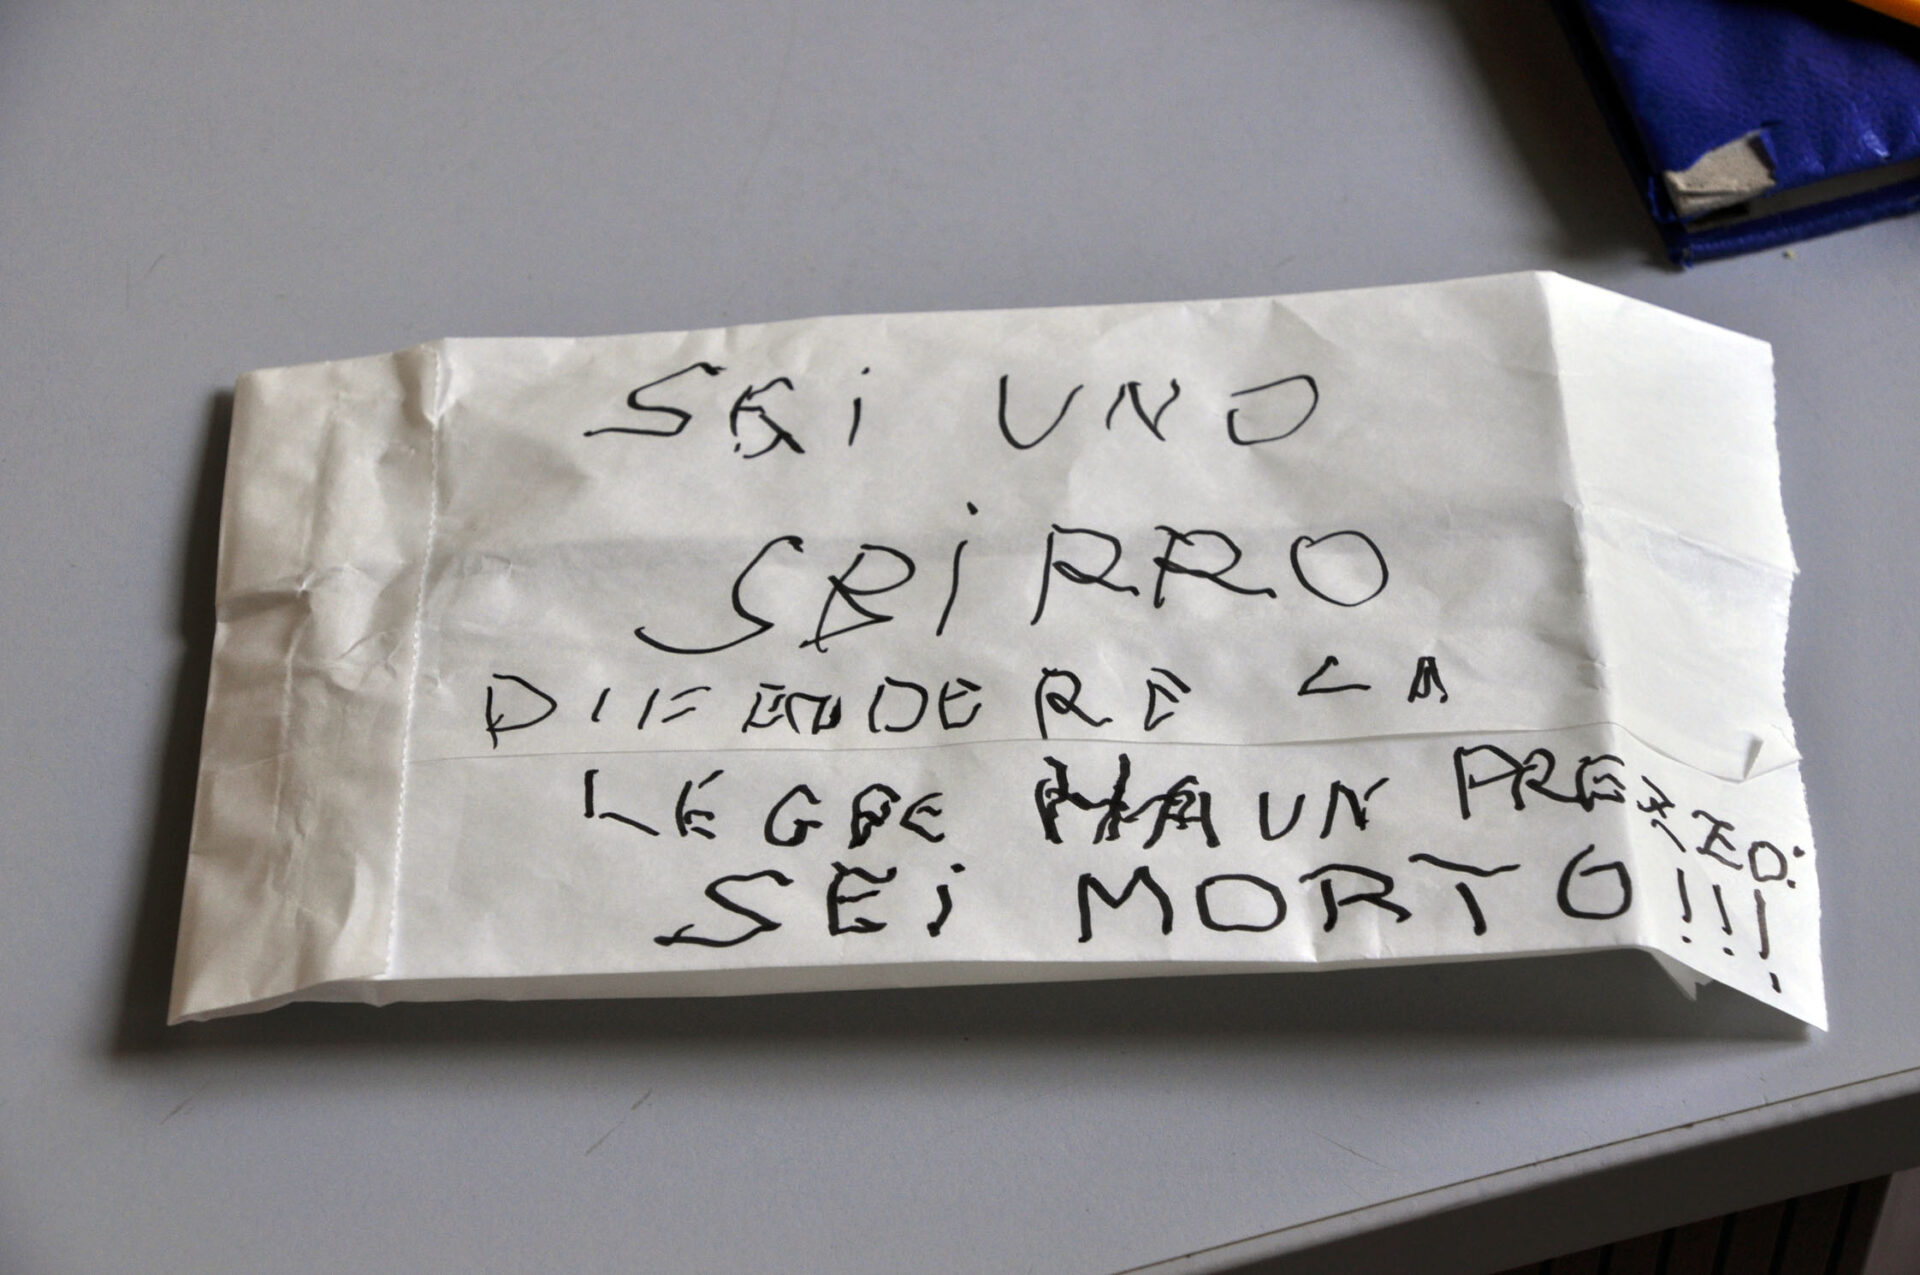 SEI UNO
SBIRRO
DIFENDERE LA
LEGGE HA UN PREZZO:
SEI MORTO!!!